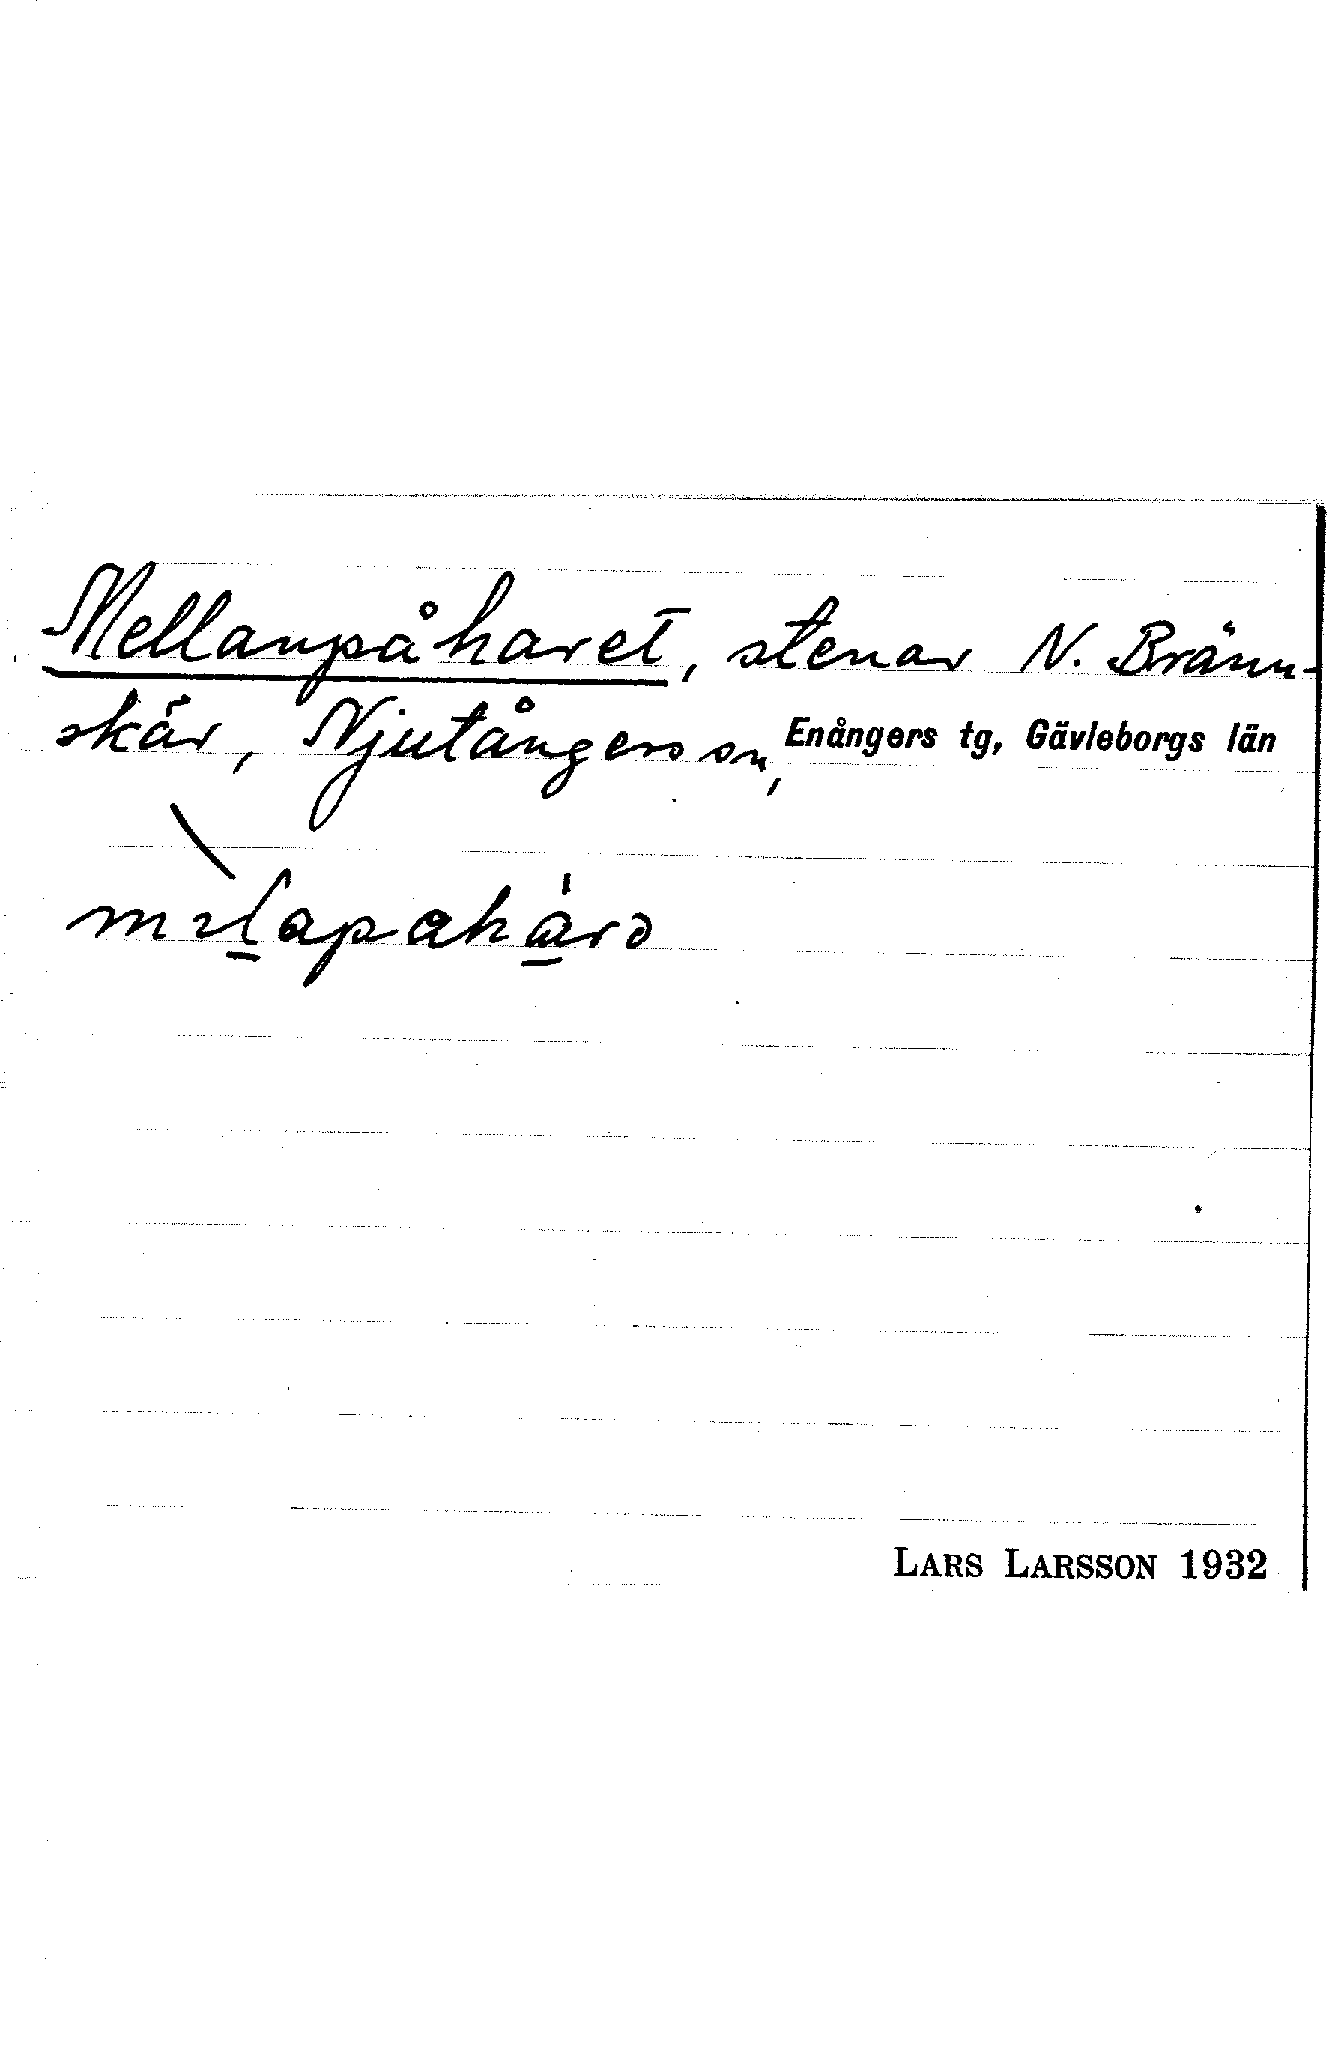 Mellanpåharet, stenar N. Bränn-
skär, Njutångers sn, Enångers tg, Gävleborgs län
LARS LARSSON 1932